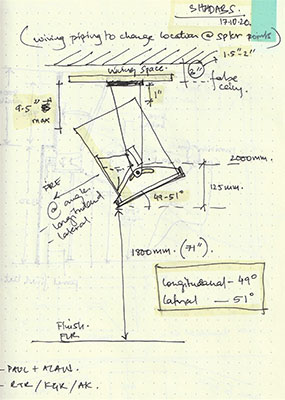 SHADABS.
17.10.20
(wiring piping to change location @ spkr points)
1.5"-2"
Wiring space
2"
false
ceiling
1"
9.5"
max
FIRE
@ angle.
longitudinal
- lateral
49-51°
2000mm.
125mm.
1800mm. (71")
longitudanal - 49°
lateral — 51°
Finish.
FLR
- PAUL + AZAM.